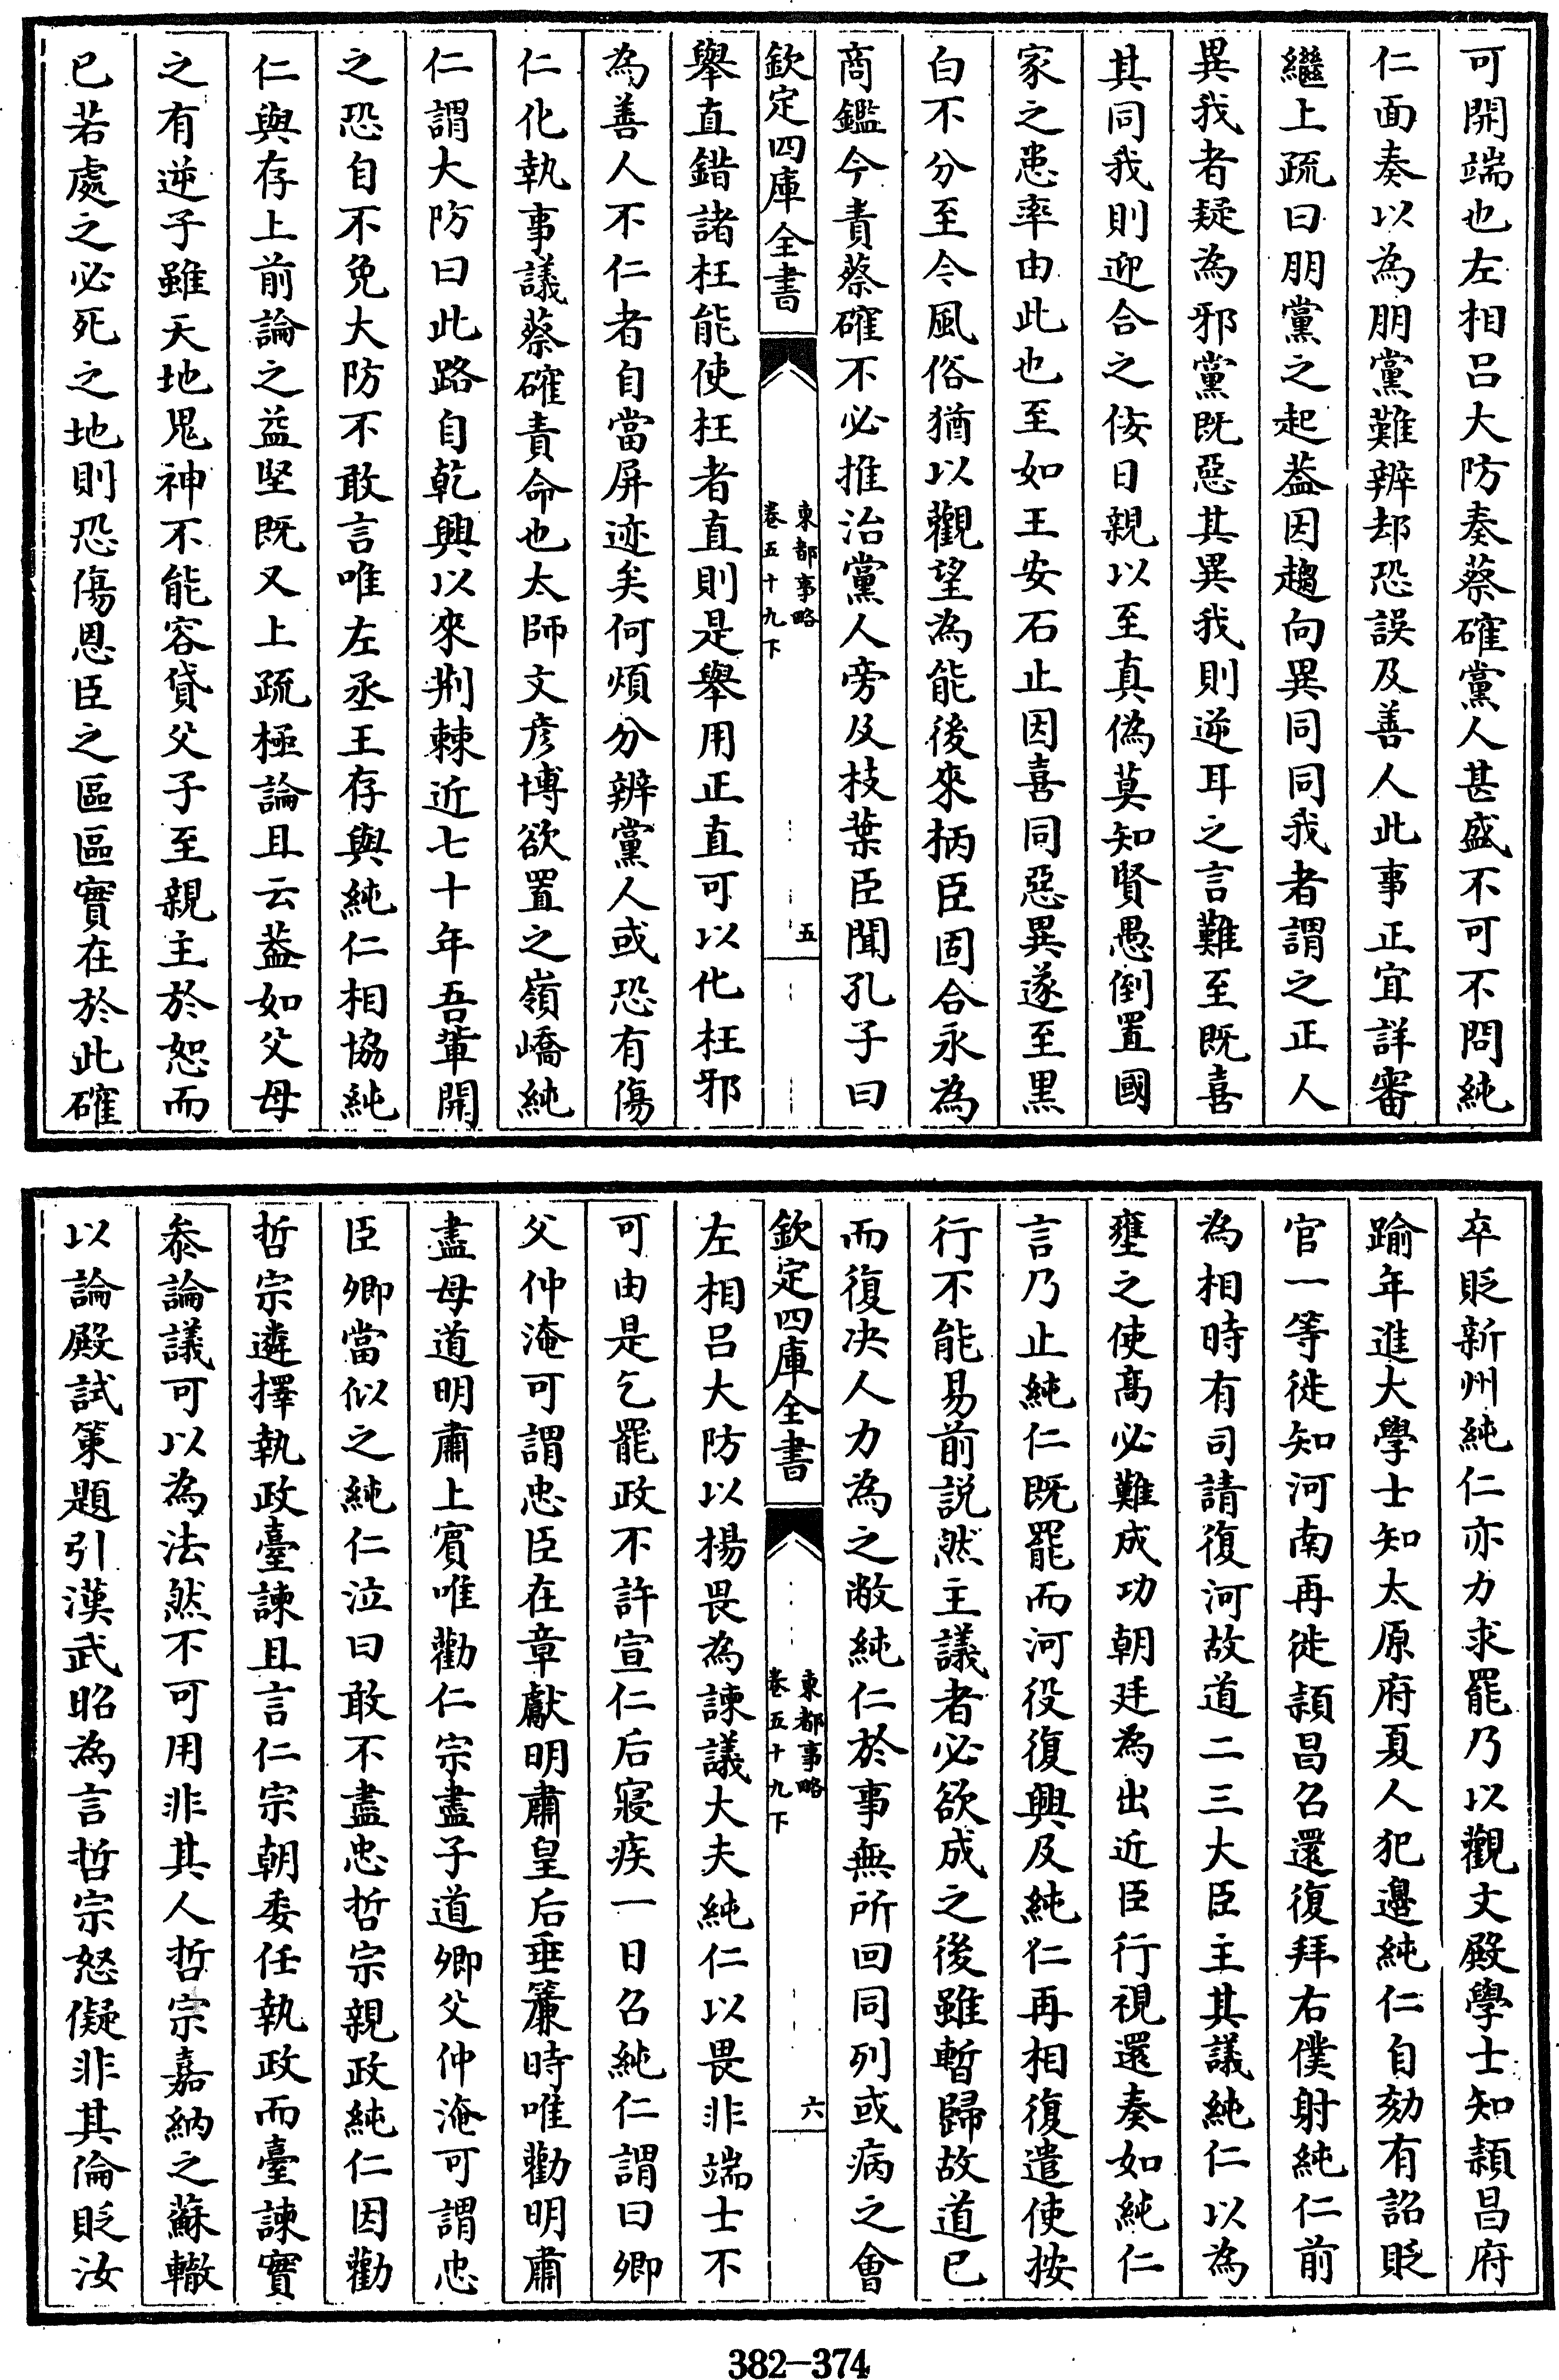 可開端也左相呂大防奏蔡確黨人甚盛不可不問純
仁面奏以為朋黨難辨却恐誤及善人此事正宜詳審
繼上疏曰朋黨之起葢因趨向異同同我者謂之正人
異我者疑為邪黨既惡其異我則逆耳之言難至既喜
其同我則迎合之佞日親以至真偽莫知賢愚倒置國
家之患率由此也至如王安石止因喜同惡異遂至黑
白不分至今風俗猶以觀望為能後來柄臣固合永為
商鑑今責蔡確不必推治黨人旁及枝葉臣聞孔子曰
欽定四庫全書
東都事略
卷五十九下
五
舉直錯諸枉能使枉者直則是舉用正直可以化枉邪
為善人不仁者自當屏迹矣何煩分辨黨人或恐有傷
仁化執事議蔡確責命也太師文彦博欲置之嶺嶠純
仁謂大防曰此路自乾興以來荆棘近七十年吾輩開
之恐自不免大防不敢言唯左丞王存與純仁相協純
仁與存上前論之益堅既又上疏極論且云葢如父母
之有逆子雖天地鬼神不能容貸父子至親主於恕而
已若處之必死之地則恐傷恩臣之區區實在於此確
卒貶新州純仁亦力求罷乃以觀文殿學士知潁昌府
踰年進大學士知太原府夏人犯邊純仁自劾有詔貶
官一等徙知河南再徙潁昌召還復拜右僕射純仁前
為相時有司請復河故道二三大臣主其議純仁以為
壅之使髙必難成功朝廷為出近臣行視還奏如純仁
言乃止純仁既罷而河役復興及純仁再相復遣使按
行不能易前説然主議者必欲成之後雖暫歸故道已
而復决人力為之敝純仁於事無所回同列或病之會
欽定四庫全書
東都事略
卷五十九下
六
左相呂大防以楊畏為諫議大夫純仁以畏非端士不
可由是乞罷政不許宣仁后寢疾一日召純仁謂曰卿
父仲淹可謂忠臣在章獻明肅皇后垂簾時唯勸明肅
盡母道明肅上賓唯勸仁宗盡子道卿父仲淹可謂忠
臣卿當似之純仁泣曰敢不盡忠哲宗親政純仁因勸
哲宗遴擇執政臺諫且言仁宗朝委任執政而臺諫實
叅論議可以為法然不可用非其人哲宗嘉納之蘇轍
以論殿試策題引漢武昭為言哲宗怒儗非其倫貶汝
382-374